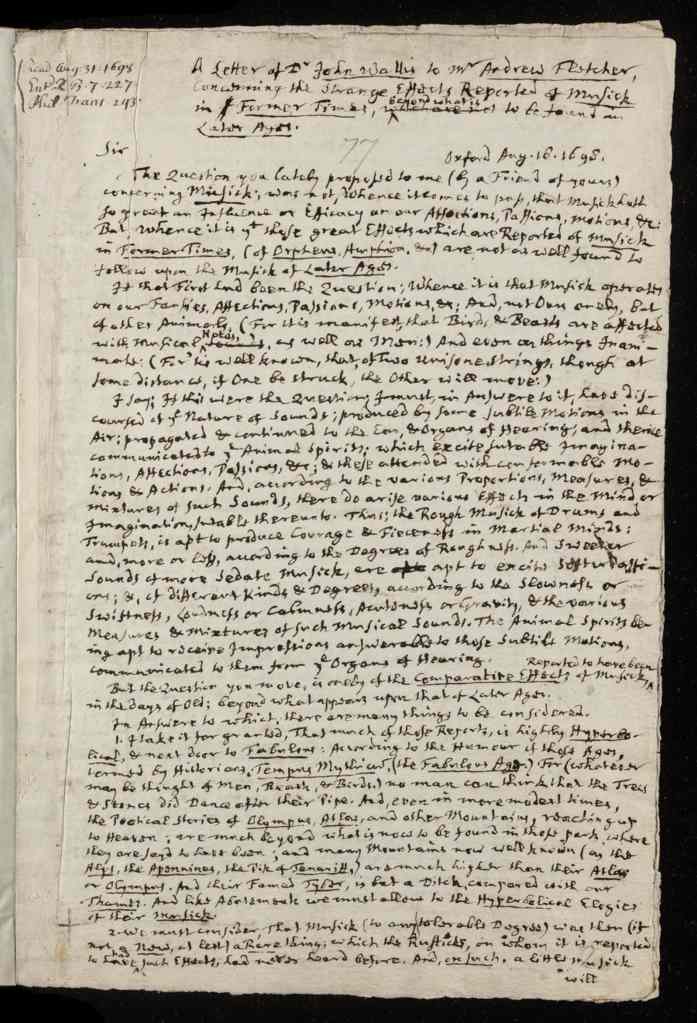 Read Aug. 31. 1698
Ent. L.B. 7. 227
Phil. Trans. 243.
A Letter of Dr John Wallis to Mr Andrew Fletcher,
Concerning the Strange Effects Reported of Musick
in Former Times, beyond what is to be found in
Later Ages.
77
Sir
Oxford Aug. 18. 1698.
The Question you lately proposed to me (by a Friend of yours)
concerning Musick, was not, Whence it comes to pass, that Musick hath
so great an Influence or Efficacy on our Affections, Passions, Motions, &c:
But, Whence it is yt these great Effects which are Reported of Musick
in Former Times, (of Orpheus, Amphion, &c) are not as well found to
follow upon the Musick of Later Ages.
If that First had been the Question; Whence it is that Musick operates
on our Fansies, Affections, Passions, Motions, &c; And, not Ours onely, but
of other Animals, (For it is manifest, that Birds, & Beasts are affected
with Musical Notes, as well as Men:) And even on things Inani-
mate: (For 'tis well known, that, of Two Unisone Strings, though at
some distances, if One be struck, the Other will move:)
I say; If this were the Question; I must, in Answere to it, have dis-
coursed of ye Nature of Sounds; produced by some subtile Motions in the
Air; propagated & continued to the Ear, & Organs of Hearing; and thence
communicated to ye Animal Spirits; which excite sutable Imagina-
tions, Affections, Passions, &c; & these attended with conformable Mo-
tions & Actions. And, according to the various Proportions, Measures, &
Mixtures of such Sounds, there do arise various Effects in the Mind or
Imagination, sutable thereunto. Thus; the Rough Musick of Drums and
Trumpets, is apt to produce Courage & Fierceness in Martial Minds;
and, more or less, according to the Degrees of Roughness. And Sweeter
Sounds of more Sedate Musick, are apt to excite Softer Passi-
ons; &, of different Kinds & Degrees, according to the Slowness or
Swiftness, Loudness or Calmness, Acuteness or Gravity, & the various
Measures & Mixtures of such Musical Sounds. The Animal Spirits be-
ing apt to receive Impressions answerable to those Subtile Motions,
communicated to them from ye Organs of Hearing.
Reported to have been
But the Question you move, is onely of the Comparative Effects of Musick,
in the days of Old; beyond what appears upon that of Later Ages.
In Answere to which, there are many things to be considered.
1. I take it for granted, That much of those Reports, is highly Hyperbo-
lical, & next door to Fabulous: According to the Humour of those Ages,
termed by Historians, Tempus Mythicum, (the Fabulous Age.) For (whatever
may be thought of Men, Beasts, & Birds,) no man can think that the Trees
& Stones did Dance after their Pipe. And, even in more modest times,
the Poetical Stories of Olympus, Atlas, and other Mountains, reaching up
to Heaven; are much beyond what is now to be found in those parts, where
they are sayd to have been; and many Mountains now well known (as the
Alps, the Apennines, the Pik of Tenariff,) are much higher than their Atlas
or Olympus. And their Famed Tyber, is but a Ditch, compared with our
Thames. And like Abatement we must allow to the Hyperbolical Elogies
of their Musick.
2. We must consider, That Musick (to any tolerable Degree) was then (if
not a New, at lest) a Rare thing; which the Rusticks, on whom it is reported
to have had such Effects, had never heard before. And, on such, a little Musick
will